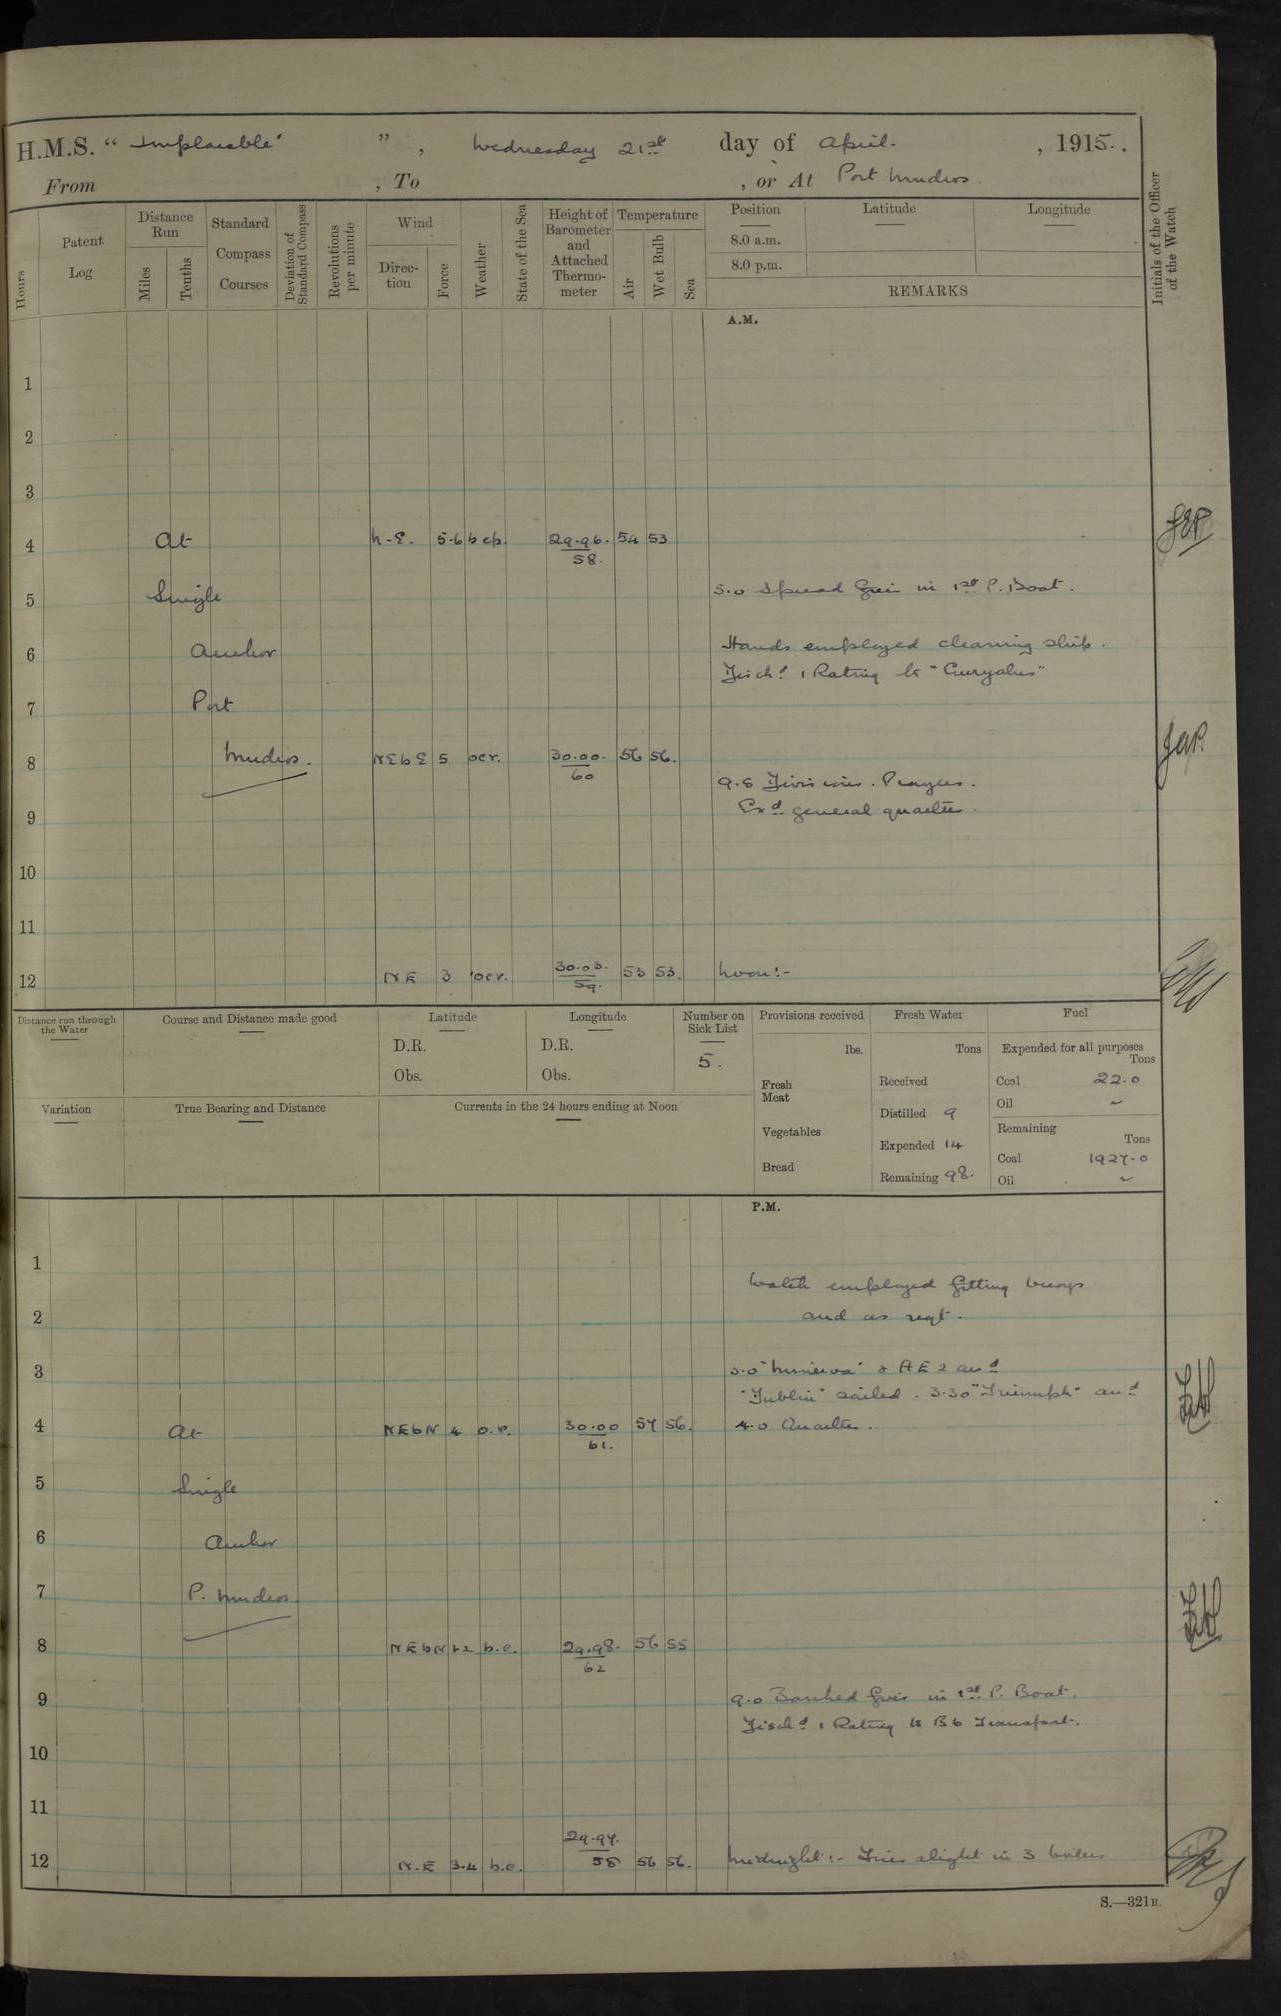 H.M.S. “ Implacable " ” , Wednesday 21st day of April. , 1915.
From , To , or At Port Mudros.
Hours
Patent Log
Distance Run
Miles
Tenths
Standard Compass Courses
Deviation of Standard Compass
Revolutions per minute
Wind
Direction
Force
Weather
State of the Sea
Height of Barometer and Attached Thermometer
Temperature
Air
Wet Bulb
Sea
Position
8.0 a.m.
8.0 p.m.
Latitude
Longitude
REMARKS
Initials of the Officer of the Watch
A.M.
1
2
3
4 At N.E. 5.6 bcp. 29.96. 54 53
58.
5.0 Spread fires in 1st P. Boat.
5 Single
6 Anchor Hands employed cleaning ship.
Disch'd 1 Rating to "Euryalus"
7 Port
8 Mudros. NEbE 5 ocr. 30.00. 56 56.
60
9.5 Divisions. Prayers.
Ex'd general quarters.
9
10
11
12 NE 3 ocr. 30.03. 53 53. Noon:-
59.
Distance run through the Water
Course and Distance made good
Latitude
D.R.
Obs.
Longitude
D.R.
Obs.
Number on Sick List
5.
Provisions received
lbs.
Fresh Meat
Vegetables
Bread
Fresh Water
Tons
Received
Distilled 9
Expended 14
Remaining 98.
Fuel
Expended for all purposes
Tons
Coal 22.0
Oil ~
Remaining
Tons
Coal 1927.0
Oil ~
Variation
True Bearing and Distance
Currents in the 24 hours ending at Noon
P.M.
1
Watch employed fitting buoys
2 and as reqt.
3 3.0 "Minerva" & AE2 arrd
"Dublin" sailed. 3.30 "Triumph" arrd
4 At NEbN 4 o.r. 30.00 57 56. 4.0 Quarters.
61.
5 Single
6 Anchor
7 P. Mudros
8 NEbN 1-2 b.c. 29.98. 56 55
62
9 9.0 Banked fires in 1st P. Boat.
Disch'd 1 Rating to B6 Transport.
10
11
29.97.
12 N.E 3.4 b.c. 58 56 56. Midnight:- Fires alight in 3 boilers
S.—321B.